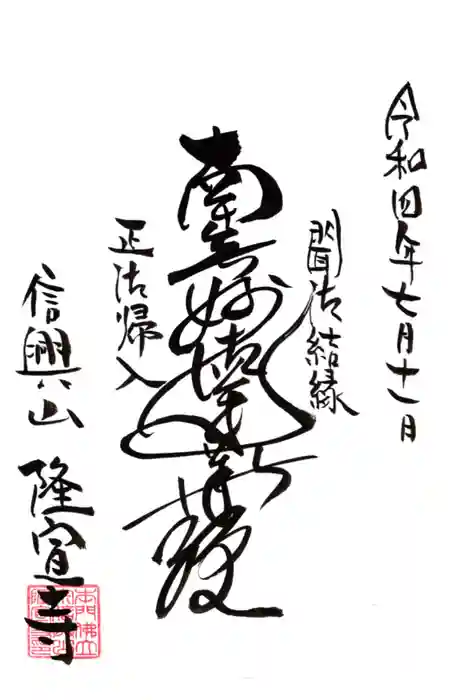 令和四年七月十一日
聞法結縁
南無妙法蓮華経
正法帰入
信興山 隆宣寺
本門佛立